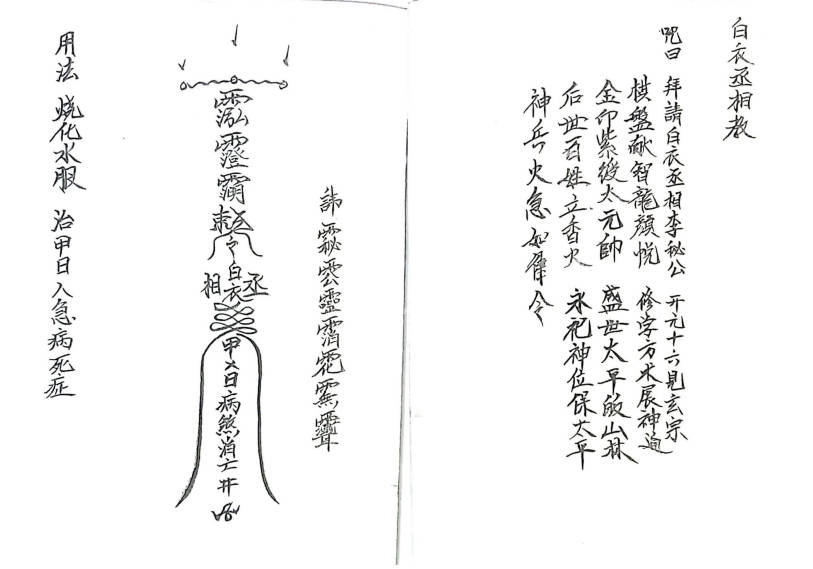 白衣丞相教
呪曰 拜請白衣丞相李秘公 开元十六見玄宗
棋盤献智龍顔悦 修学方术展神通
金印紫綬太元帥 盛世太平皈山林
后世百姓立香火 永祀神位保太平
神兵火急如律令
諱
令
白衣丞相
甲乂日病煞消亡井
用法 烧化水服 治甲日人急病死症